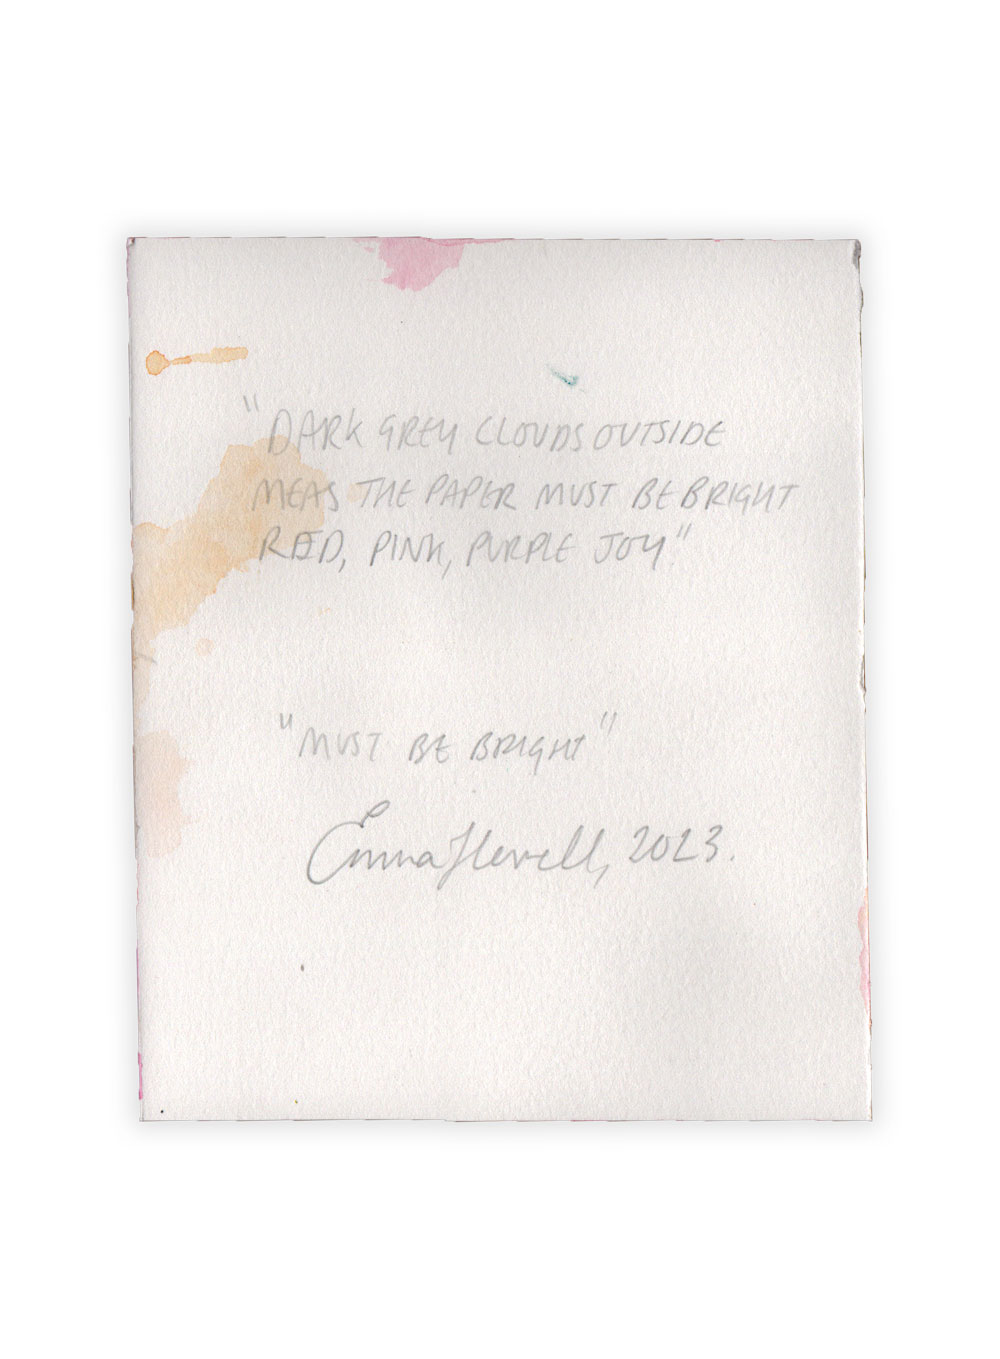 "DARK GREY CLOUDS OUTSIDE
MEAS THE PAPER MUST BE BRIGHT
RED, PINK, PURPLE JOY"
"MUST BE BRIGHT"
Emma Howell, 2023.